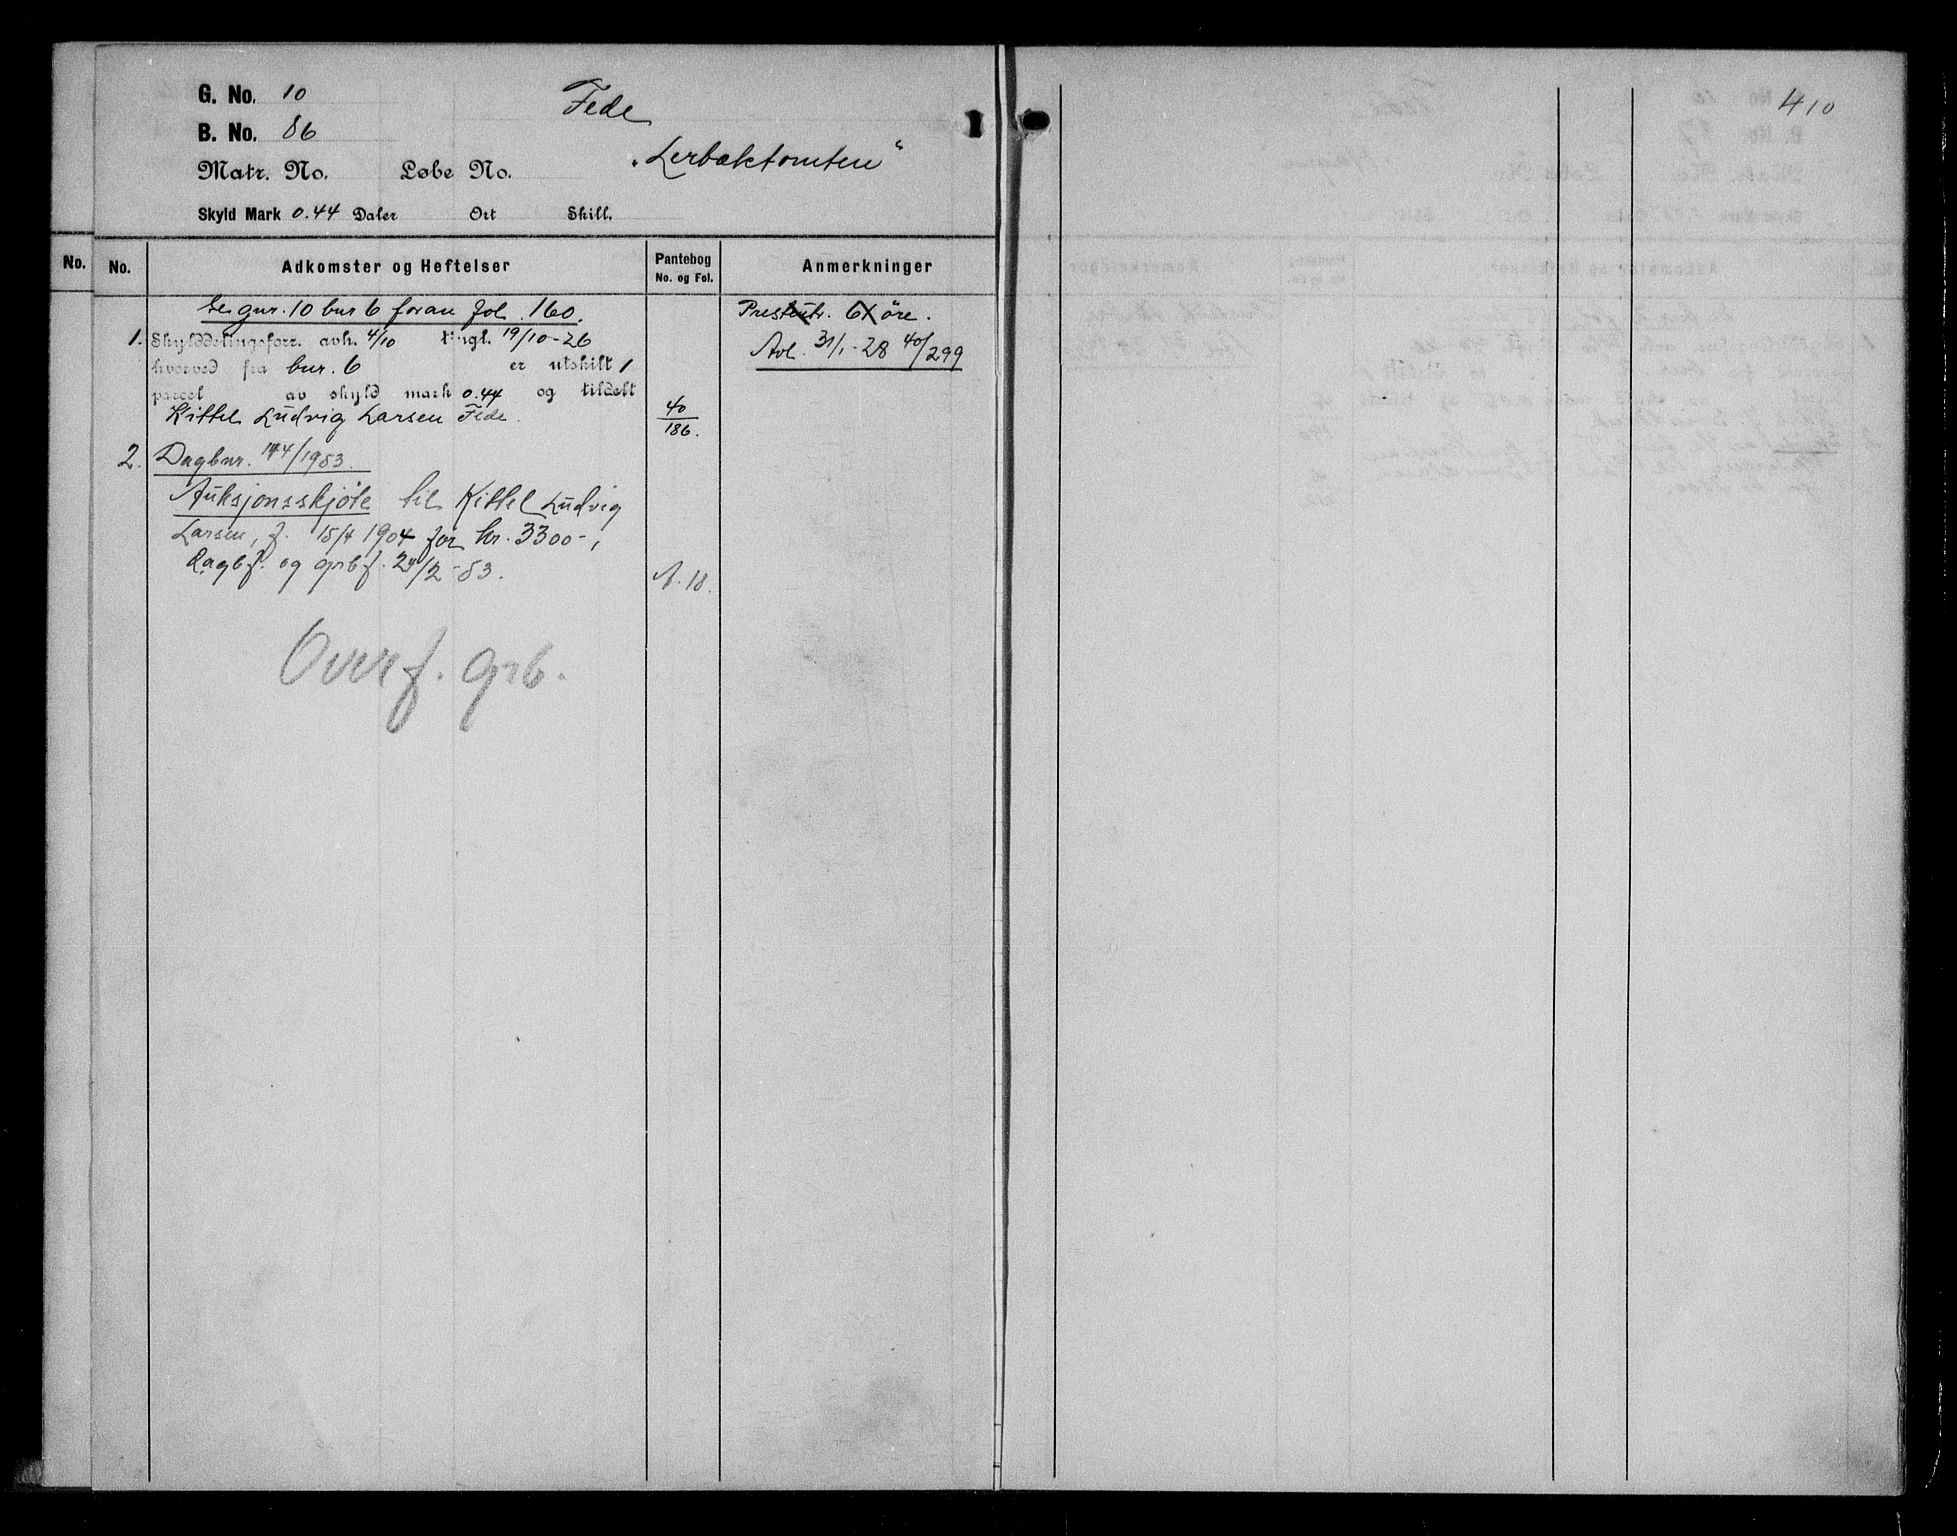 410
G. No. 10
Fede
B. No. 86
"Lerbæktomten"
Matr. No. Løbe No.
Skyld Mark 0.44 Daler Ort Skill.
No.
No. Adkomster og Heftelser Pantebog No. og Fol. Anmerkninger
Se gnr. 10 bnr 6 foran fol. 160.
Presteutr. 6 öre.
1. Skylddelingsforr. avh. 4/10 tingl. 19/10-26
Avl. 31/1-28 40/299
hvorved fra bnr. 6 er utskilt 1
parcel av skyld mark 0.44 og tildelt
Kittel Ludvig Larsen Fede. 40/186.
2. Dagbnr. 144/1953.
Auksjonsskjøte til Kittel Ludvig
Larsen, f. 15/4 1904 for kr. 3300-,
Dagbf. og grbf. /2-53. A. 18.
Overf. grb.